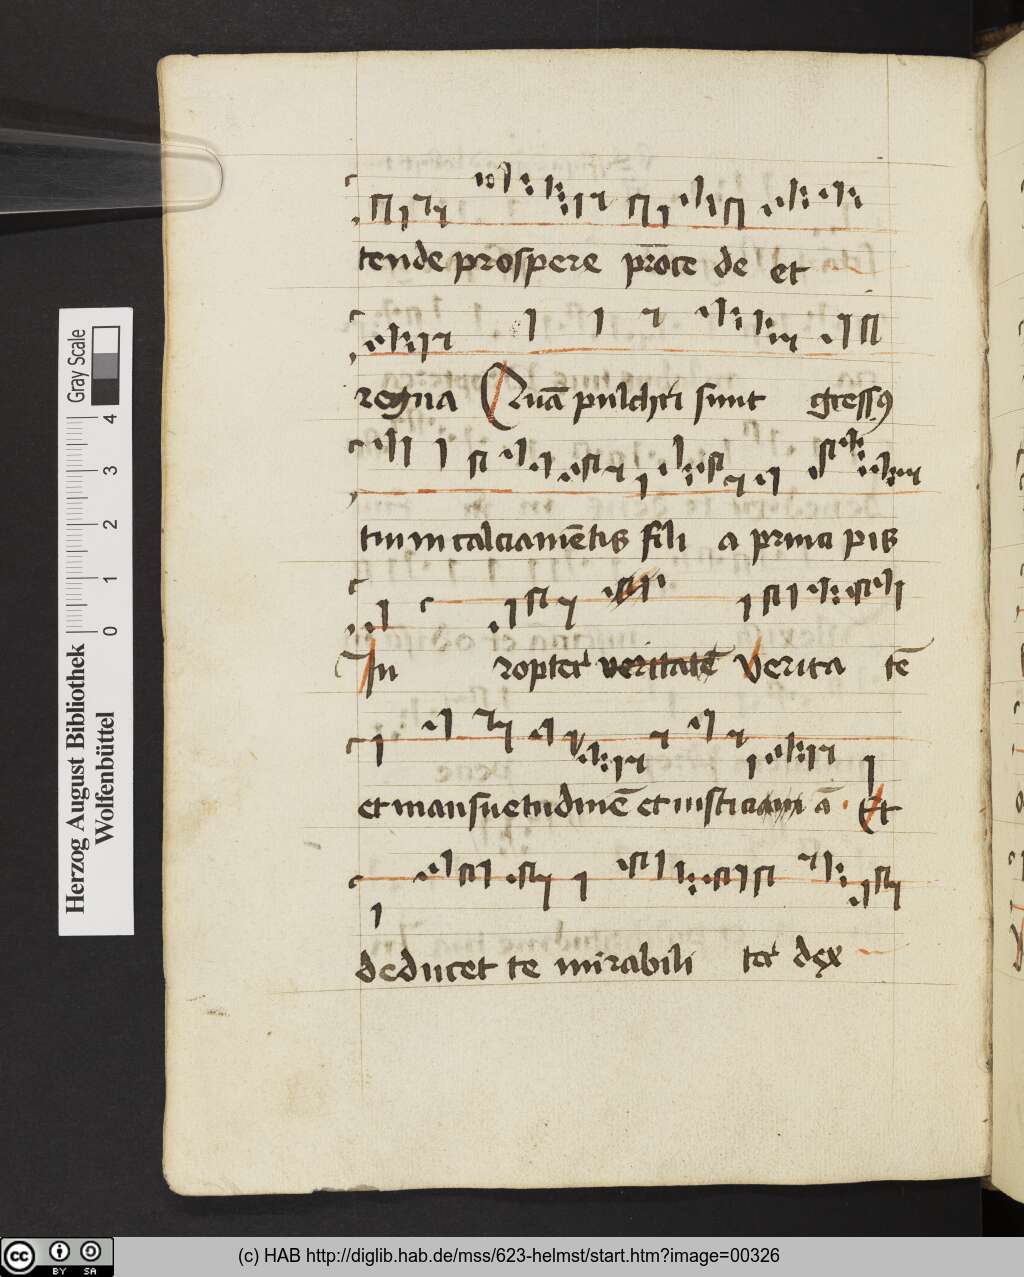 tende prospere proce de et
regna Quā pulchri sunt gressꝯ
tui in calciamētis fili a princi pis
In ropter veritatē Verita tē
et mansuetudinē et iusticiam ā Et
deducet te mirabili ter dex
Gray Scale
0 1 2 3 4
Herzog August Bibliothek
Wolfenbüttel
cc BY SA
(c) HAB http://diglib.hab.de/mss/623-helmst/start.htm?image=00326